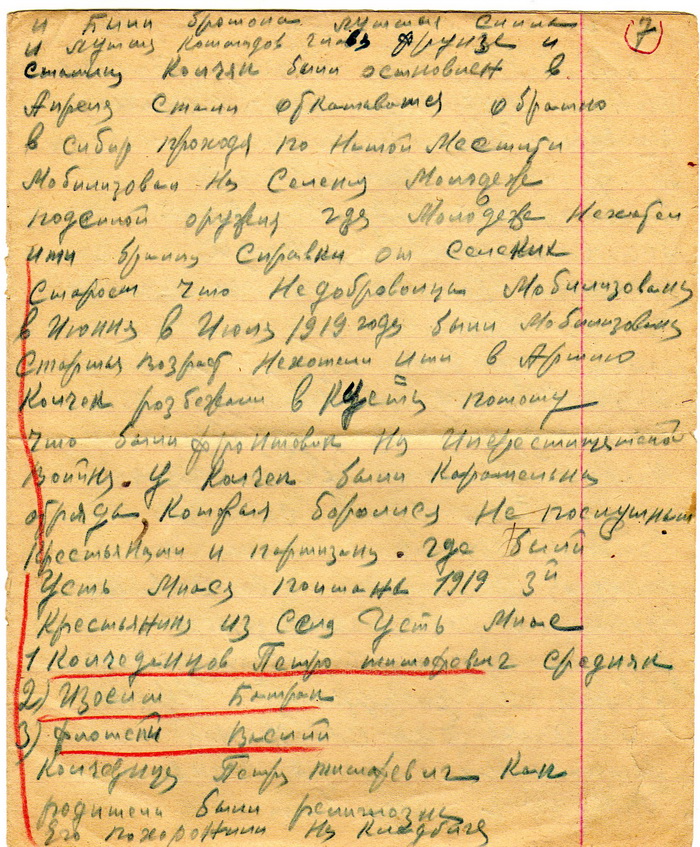 7
и были брошона лутшая силна
и лутшая командов глава Фрунзе и
сталиц Колчак были остновлен в
Апреля стали откатыватся обратно
в сибир проходя по нашой Местнти
Мобилизовал На Селения Молодеж
подсилой оружия где Молодежа Нехотел
ити брали справки от сельских
старост что Недобровольца Мобилизованы
в Июння в Июля 1919 года были Мобилизованы
старшая возраст Нехотели ити в Армию
Колчек розбежали в Кусты потому
что были фронтовик На
война. у Колчек были Карательны
отряды Которыя боролися Не послушным
Крестьянами и партизаны. где были
Усть Миася пойманы 1919 3й
Крестьянина из Села Усть Миас
1 Колчеданцов Петро тимофевич средняк
2) Изосим Батрак
3) Василий
Колчеданца Петра тимофевич Как
родители были религиозны
Его похоронили На Кладбища